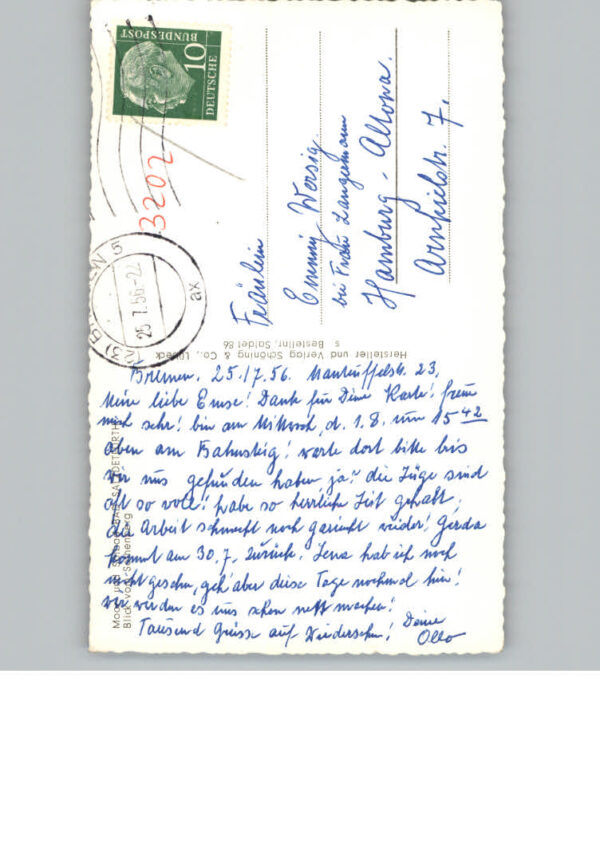 10
DEUTSCHE
BUNDESPOST
3202
25.7.56-22
ax
Fräulein
Emmy Wersig
bei Frau Langemann
Hamburg-Altona.
Arnkielstr. 7.
Hersteller und Verlag Schöning & Co., Lübeck
s Bestellnr. Saldet 86
Bremen, 25./7.56. Manteuffelstr. 23.
Meine liebe Emse! Dank für Deine Karte! freue
mich sehr! bin am Mittwoch, d. 1.8. um 15 42
oben am Bahnsteig! warte dort bitte bis
wir uns gefunden haben ja? die Züge sind
oft so voll! habe so herrliche Zeit gehabt,
die Arbeit schmeckt noch garnicht wieder! Gerda
kommt am 30.7. zurück. Lena hab ich noch
nicht gesehn, geh' aber diese Tage nochmal hin!
wir werden es uns schon nett machen!
Tausend Grüsse auf Wiedersehn! Deine
Otto
Moor
Blick vom